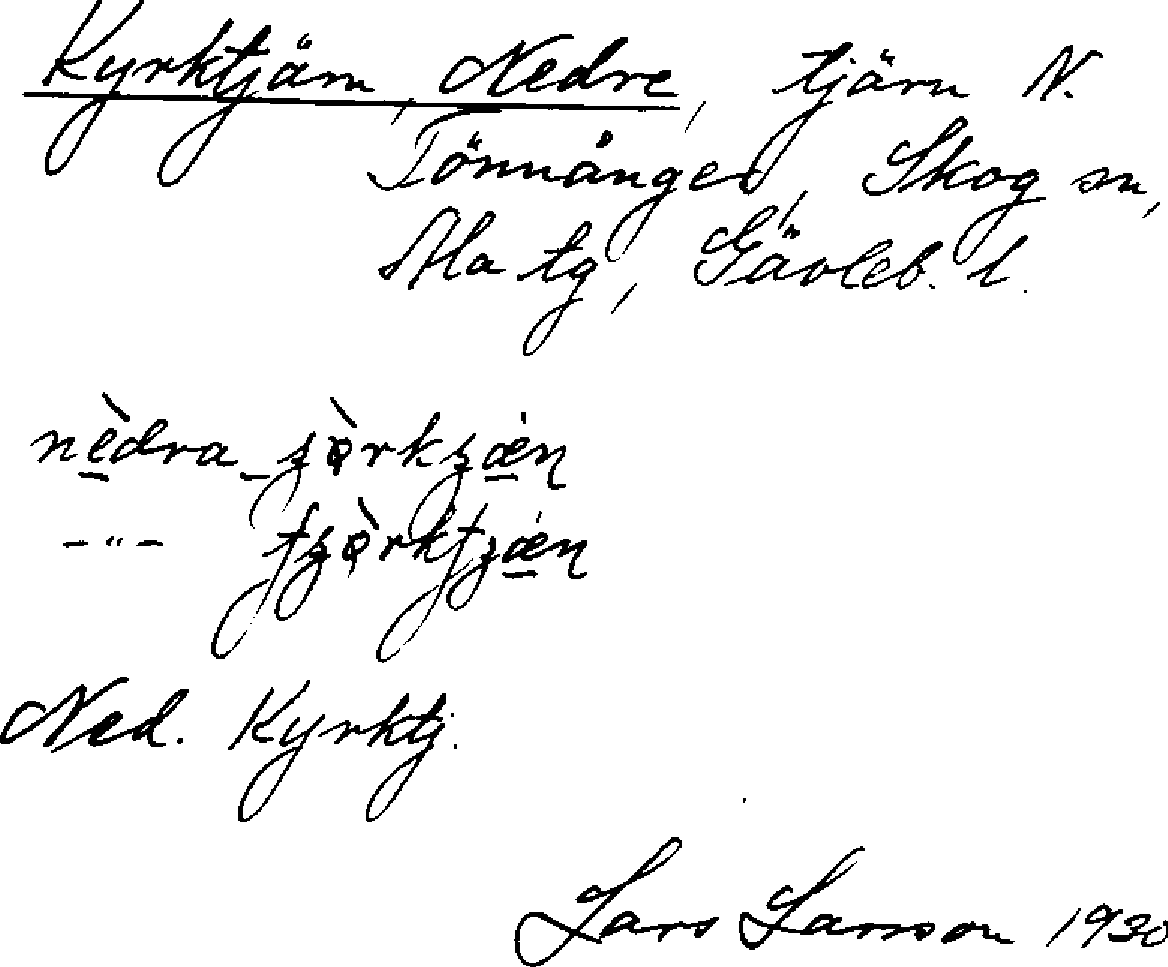 Kyrktjärn, Nedre, tjärn N.
Tönnånger, Skog sn,
Ala tg, Gävleb. l.
nèdra
-"-
Ned. Kyrktj.
Lars Larsson 1930